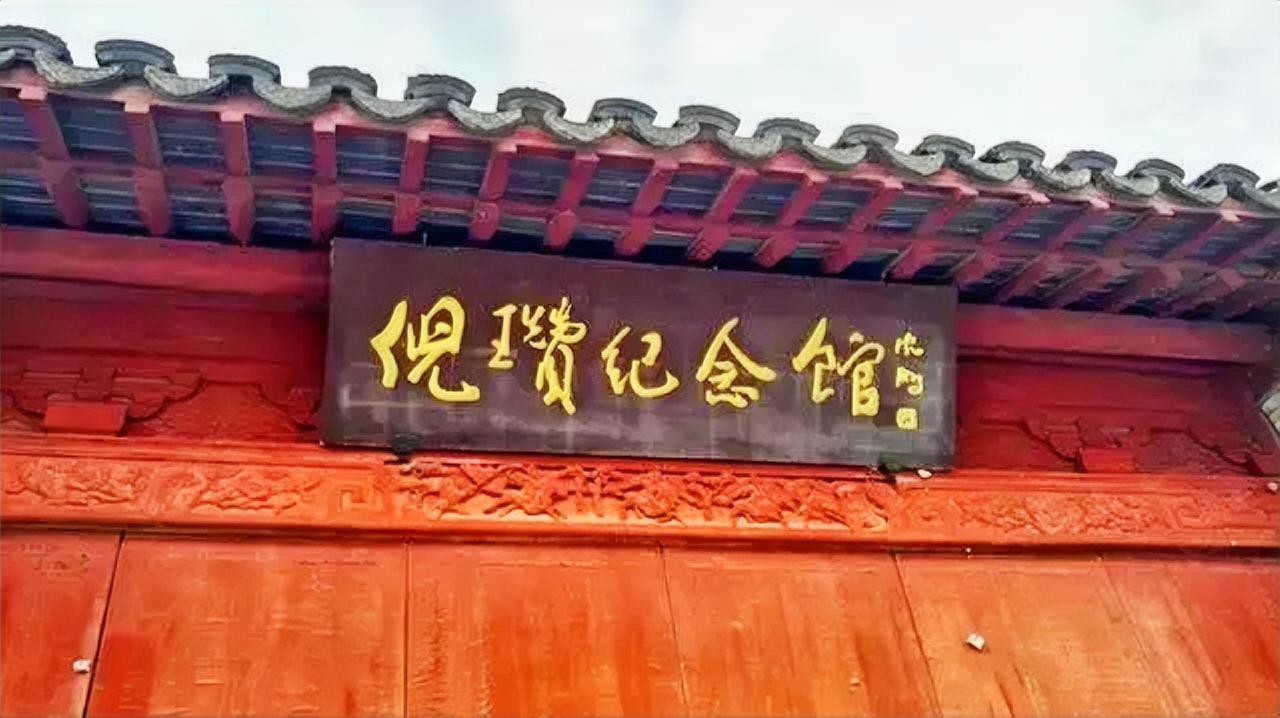 倪瓒纪念馆